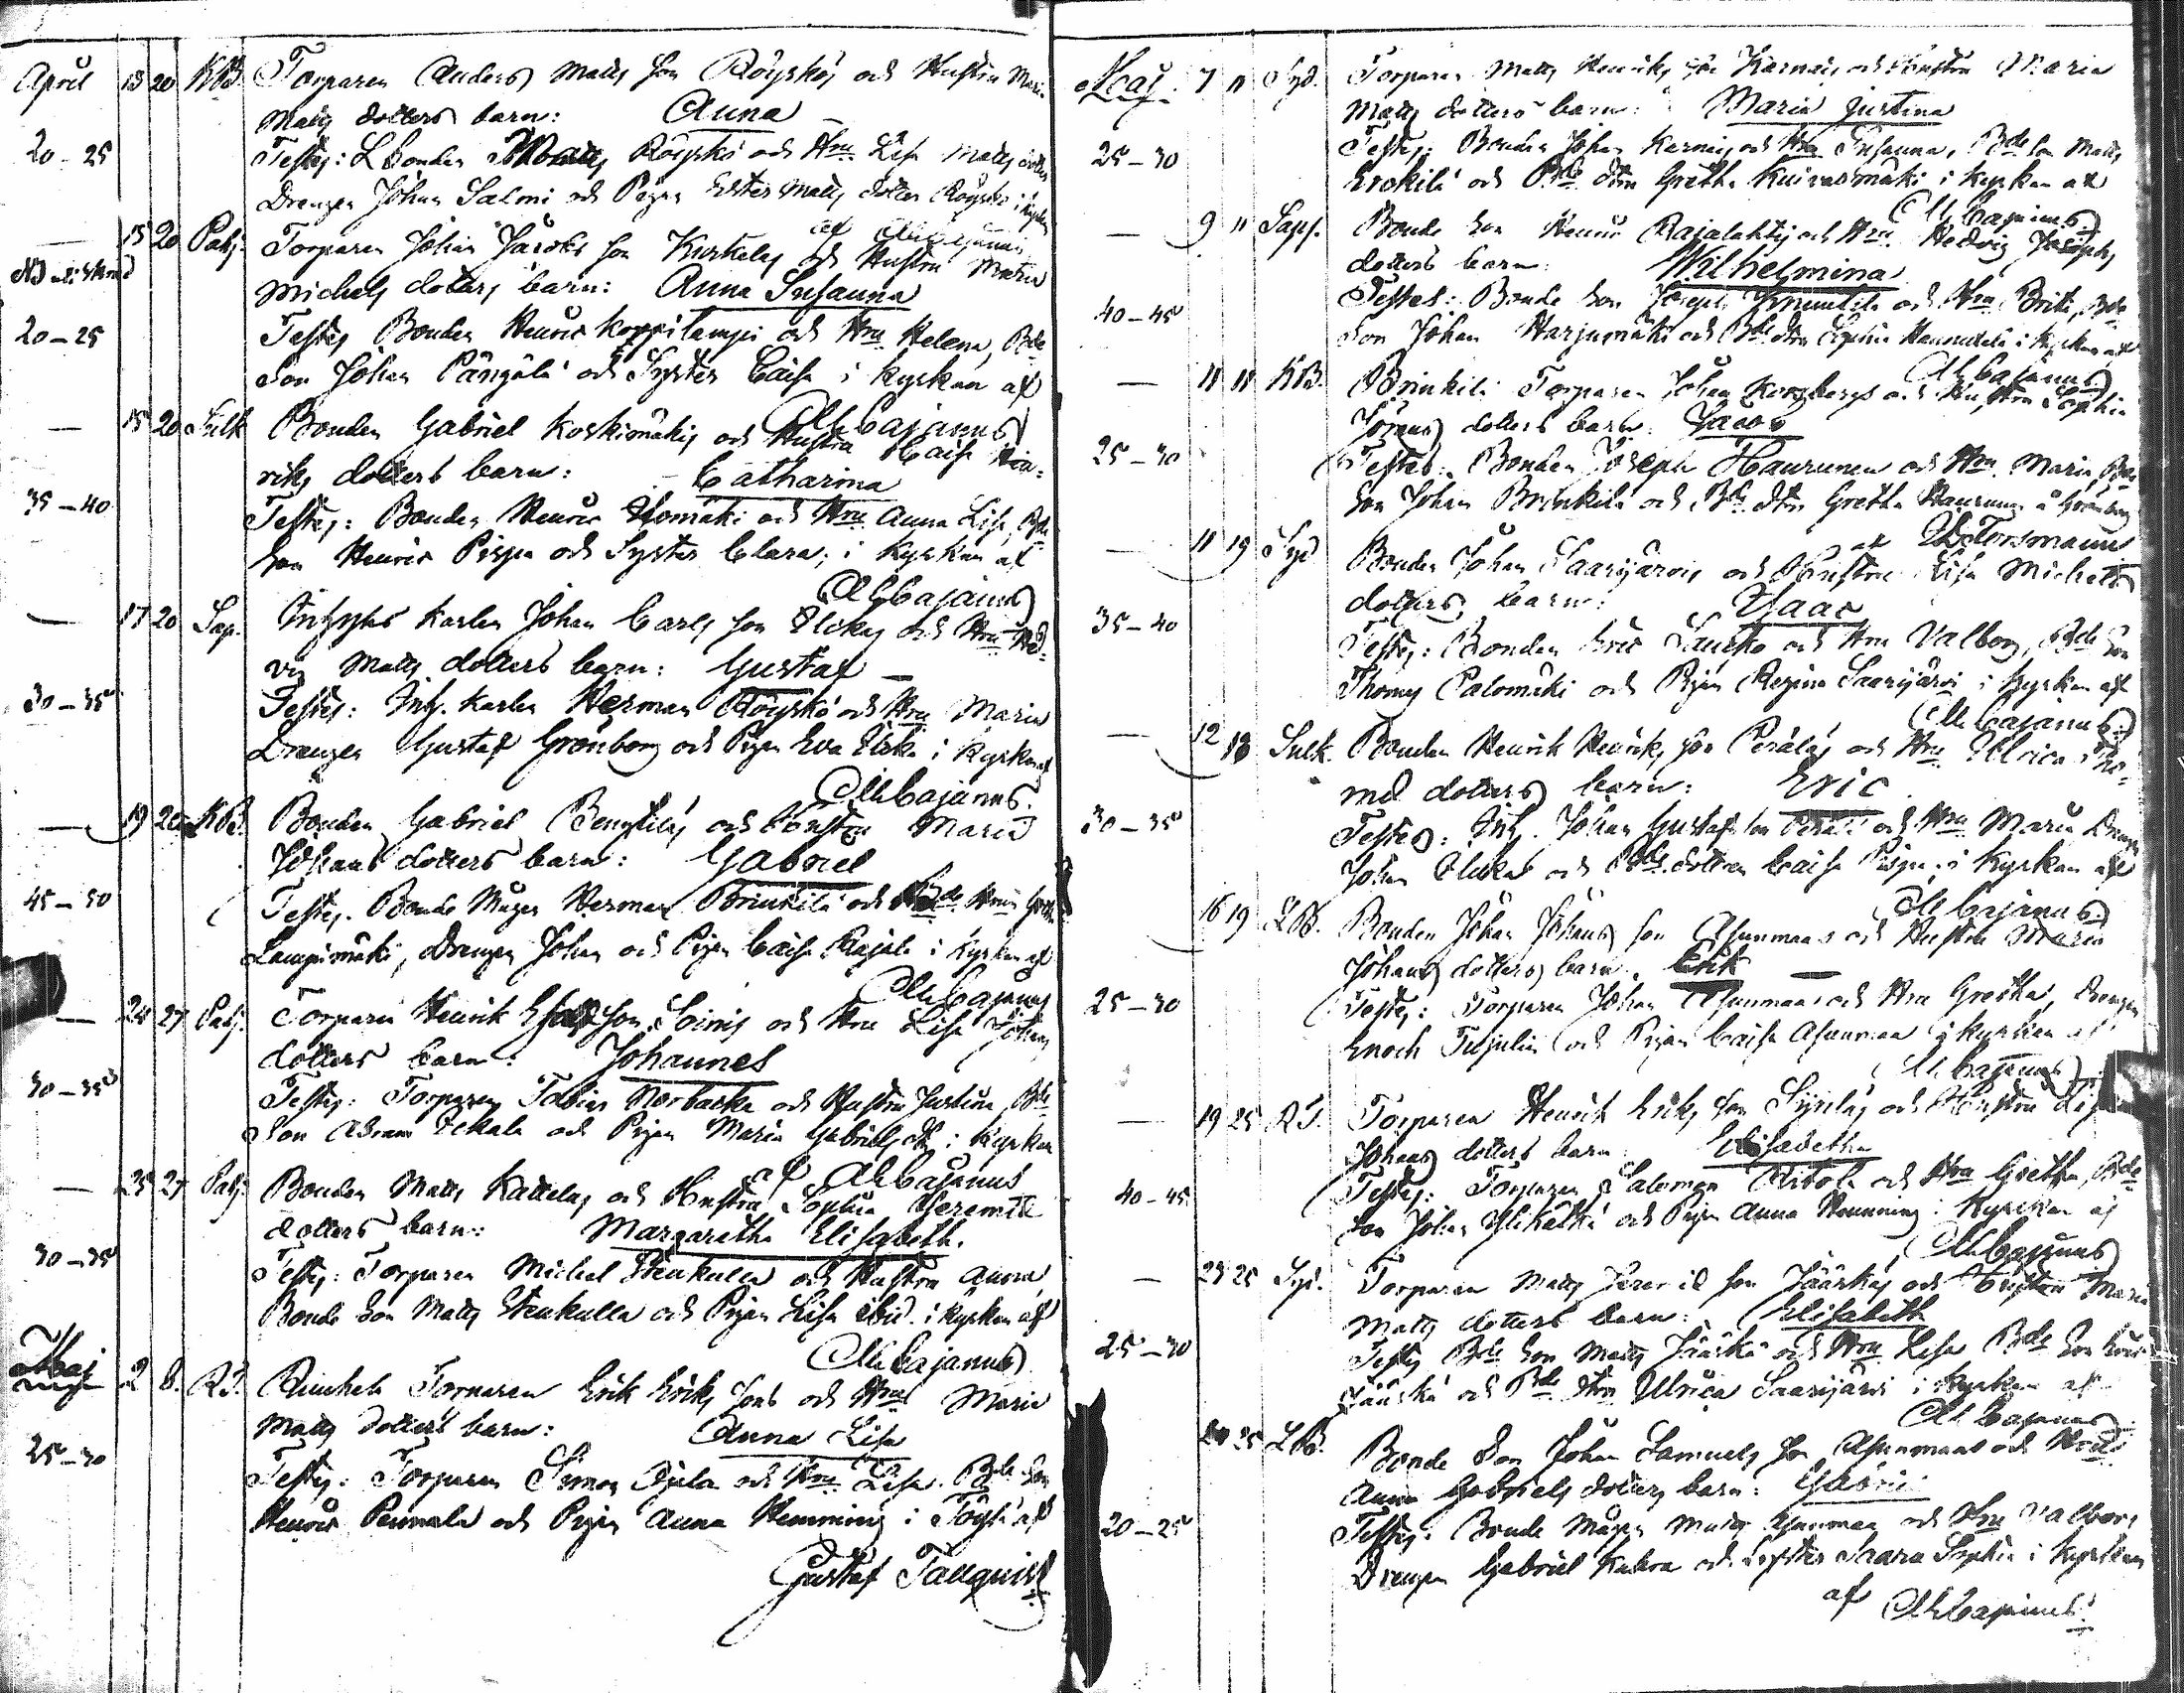 April 13 20 KB. Torparen Anders Matts Son Röyskös och Hustru Maria
Matts dotters barn: Anna
20-25 Testes: Bonden Röyskö och Hru Lisa Matts dotter
Drengen Johan Salmi och Pigan Ester Matts dotter Röyskö i kyrkan
af AHCajanus
— 15 20 Pahj. Torparen Johan Jacobs Son Kurkelas och Hustru Maria
Michels dotters barn: Anna Susanna
20-25 Testes Bonden Henric Koppilampi och Hru Helena, Bde
Son Johan Pångälä och Syster Caisa i kyrkan af
AHCajanus
— 15 20 Sulk Bonden Gabriel Koskimäkis och Hustru Caisa Hin-
riks dotters barn: Catharina
35-40 Testes: Bonden Henric Isomäki och Hru Anna Lisa, Bde
Son Henric Pispa och Syster Clara, i kyrkan af
AHCajanus
— 17 20 Sap. Inhyses Karlen Johan Carls Son och Hru Hed-
vig Matts dotters barn: Gustaf
30-35 Testes: Inh. Karlen Herman Röyskö och Hru Maria
Drengen Gustaf Grönborg och Pigan Eva i kyrkan af
AHCajanus.
— 19 20 KB. Bonden Gabriel Bengtiläs och Hustru Maria
Johans dotters barn: Gabriel
45-50 Testes. Bonde Mågen Herman Brinkilä och Hru Greta
Lampimäki, Drengen Johan och Pigan Caisa Rajala i kyrkan af
AHCajanus
— 24 27 Pahj. Torparen Henrik Son Soinis och Hru Lisa Johans
dotters barn: Johannes
30-35 Testes: Torparen Tobias Norrbacka och Hustru Justina, Bde
Son och Pigan Maria Gabriels dtr i kyrkan
af AHCajanus
— 25 27 Pahj. Bonden Matts Kattelas och Hustru Sophia Jeremie
dotters barn: Margaretha Elisabeth.
30-35 Testes: Torparen Michel Stenkulla och Hustru Anna,
Bonde Son Matts Stenkulla och Pigan Lisa ibid. i kyrkan af
AHCajanus
Maj 2 8. RT. Torparen Erik Eriks Sons och Hru Maria
Matts dotters barn: Anna Lisa
25-30 Testes: Torparen Simon och Hru Lisa. Bde Son
Henric Pennala och Pigan Anna Hemming i Töysä af
Gustaf Tallqvist
Maj. 7 11 Syd. Torparen Matts Henriks Son Karnais och Hustru Maria
Matts dotters barn: Maria Justina
25-30 Testes: Bonden Johan Karnais och Hru Susanna, Bde Son Matts
Erckilä och Bde dtrn Gretha Kuivasmäki i kyrkan af
AHCajanus
— 9 11 Sapp. Bonde Son Henric Rajalahtis och Hru Hedvig Josephs
dotters barn: Wilhelmina
40-45 Testes: Bonde Son Joseph och Hru Brita, Bde
Son Johan Harjumäki och Bde dtrn Sophia Hannukkala i kyrkan af
AHCajanus
— 11 11 KB. Brinkilä Torparen Johan Korsbergs och Hustru Sophia
Jörans dotters barn: Jacob
25-30 Testes: Bonden Joseph Haurunen och Hru Maria, Bde
Son Johan Brinkilä och Bde dtrn Gretha Haurunen å Grönborg
af Forsmann
— 11 19 Syd Bonden Johan Saarijärvis och Hustru Lisa Michels
dotters barn: Isaac
35-40 Testes: Bonden Eric Sauko och Hru Valborg, Bde Son
Thomas Palomäki och Pigan Regina Saarijärvi i kyrkan af
AHCajanus
— 12 18 Sulk. Bonden Henrik Henriks Son Peräläs och Hru Ulrica Tho-
mæ dotters barn: Eric
30-35 Testes: Inh. Johan Gustafs Son Perälä och Hru Maria Drengen
Johan och Bde dottern Caisa Pispa i kyrkan af
AHCajanus
16 19 LB. Bonden Johan Johans Son Asunmaas och Hustru Maria
Johans dotters barn: Erik
25-30 Testes: Torparen Johan Asunmaa och Hru Gretha, Drengen
Enoch Tujulin och Pigan Caisa Asunmaa i kyrkan af
AHCajanus
— 19 25 RT. Torparen Henrik Eriks Son Syriläs och Hustru Lisa
Johans dotters barn Elisabetha
40-45 Testes: Torparen Salomon Ritola och Hru Gretha, Bde
Son Johan och Pigan Anna Hemming i kyrkan af
AHCajanus
— 23 25 Syd. Torparen Matts Son Jääskäs och Hustru Maria
Matts dotters barn: Elisabeth
25-30 Testes Bde Son Matts Jääskä och Hru Lisa Bde Son Eric
Jääskä och Bde dtrn Ulrica Saarijärvi i kyrkan af
AHCajanus
24 25 LB. Bonde Son Johan Samuels Son Asunmaas och Hrus
Anna Gabriels dotters barn: Gabriel
20-25 Testes: Bonde Mågen Matts Asunmaa och Hru Valborg
Drengen Gabriel och Syster Saara Sophia i kyrkan
af AHCajanus